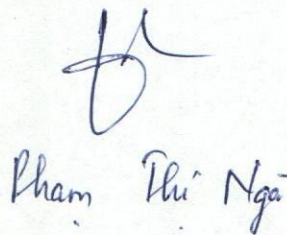 Phạm Thị Ngà